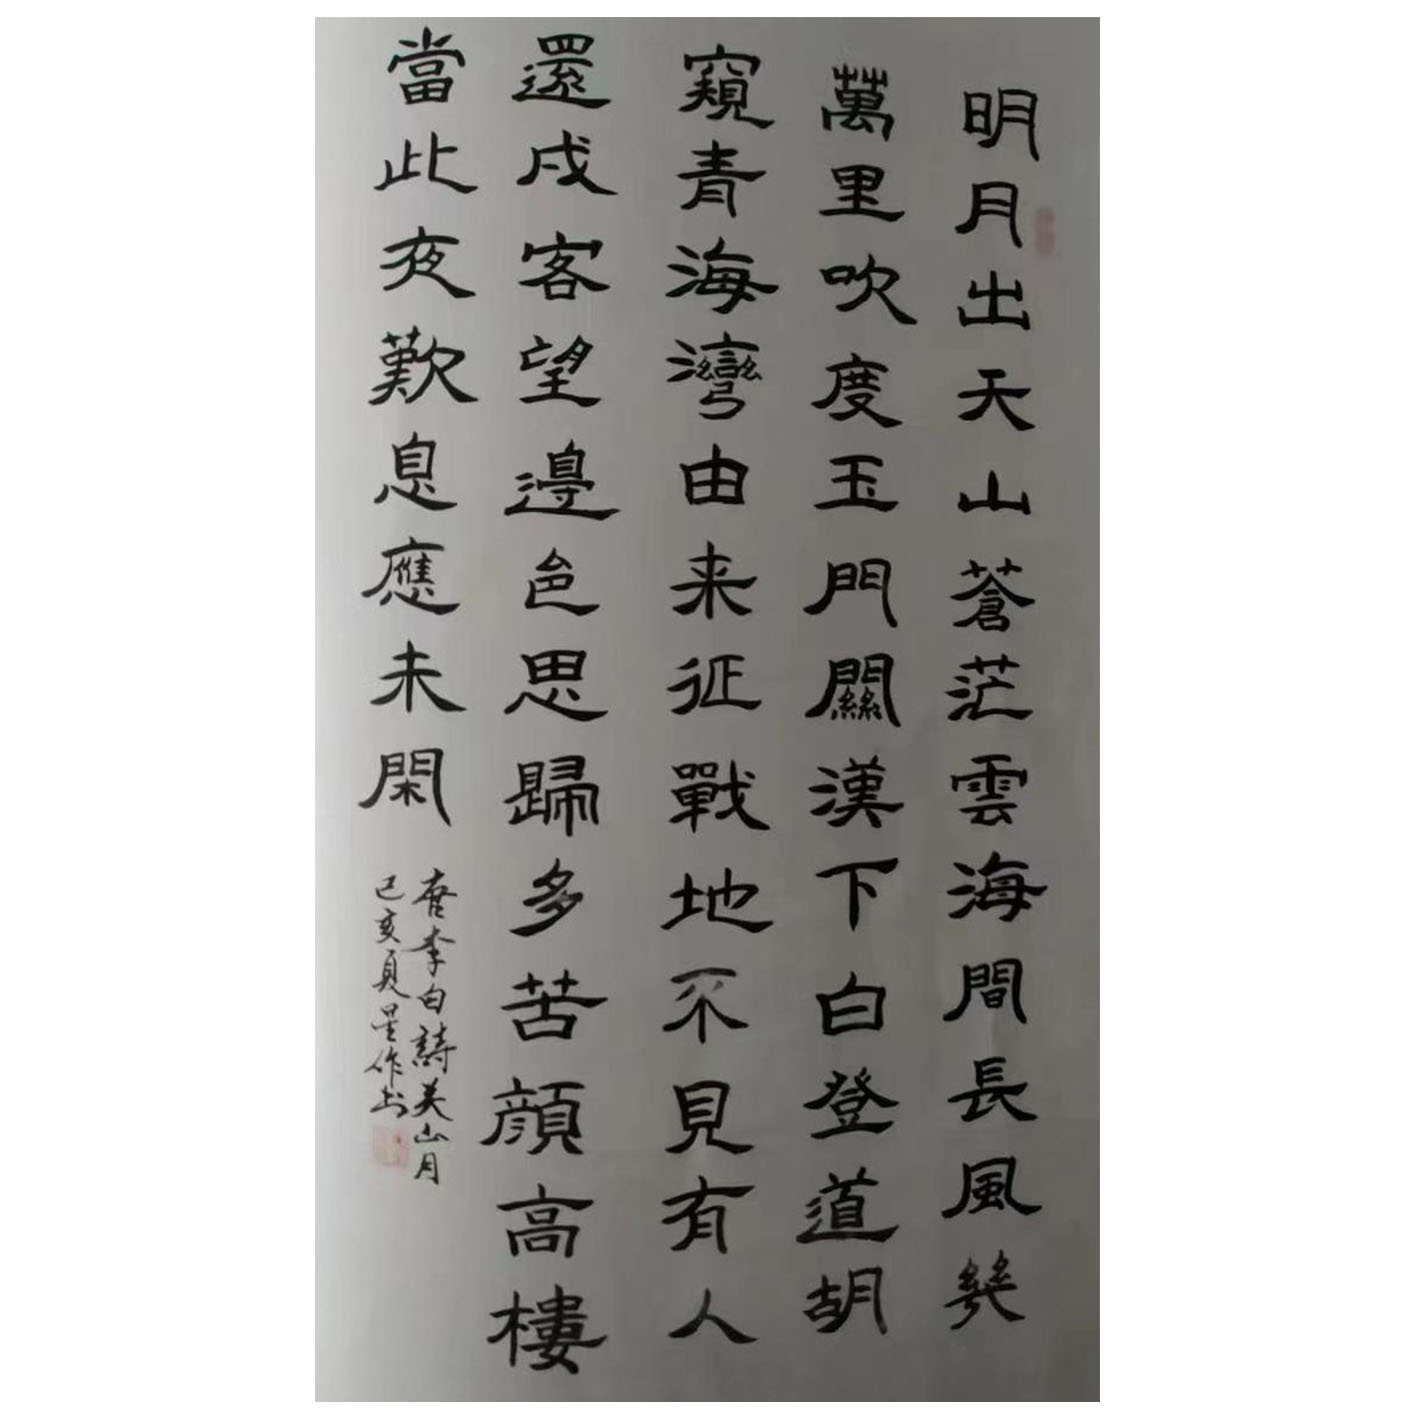 明月出天山蒼茫雲海間長風幾
萬里吹度玉門關漢下白登道胡
窺青海灣由来征戰地不見有人
還戍客望邊色思歸多苦顔高樓
當此夜歎息應未閑
唐李白詩关山月
己亥夏星作书